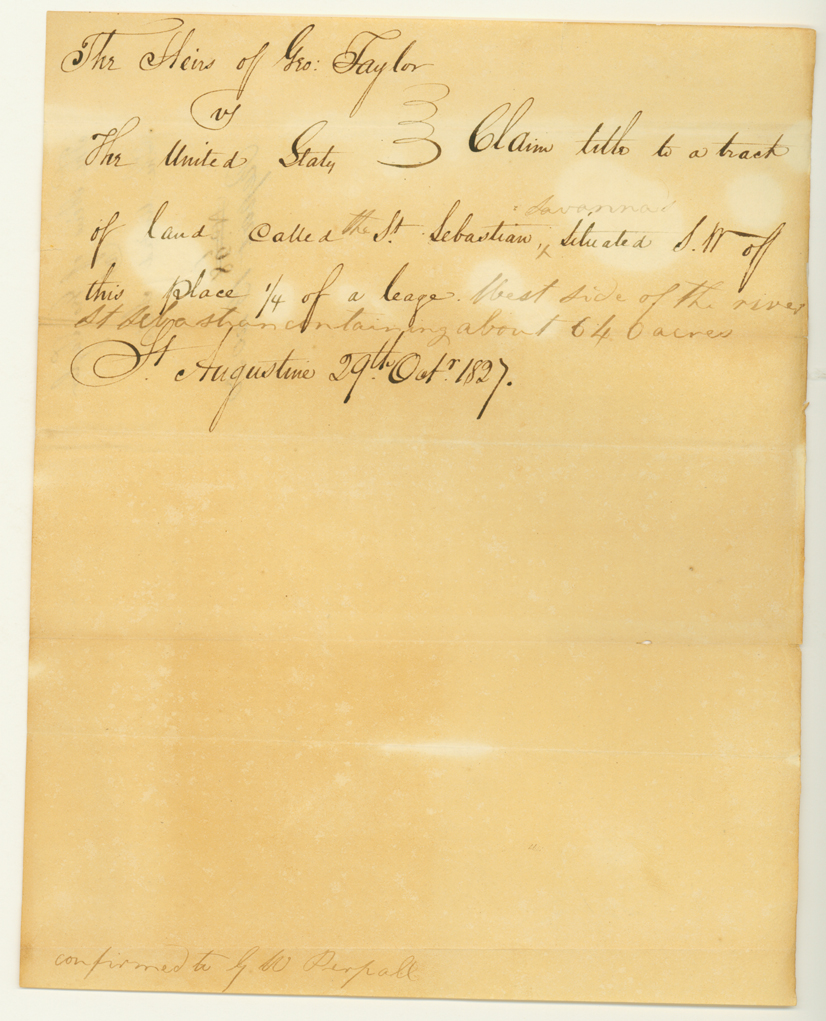 The Heirs of Geo: Taylor
vs
The United States Claim title to a track
Savannas
of land called the St. Sebastian, x situated S.W of
this place 1/4 of a leage. West side of the river
St Sebastian containing about 640 acres
St. Augustine 29th. Octr. 1827.
confirmed to G. W Perpall